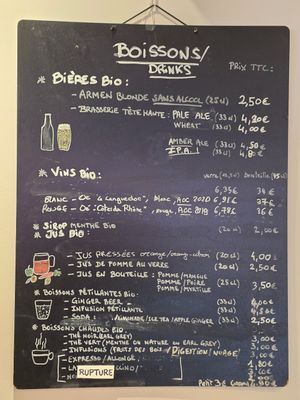 BOISSONS/
DRINKS
PRIX TTC:
* BIÈRES BIO:
- ARMEN BLONDE SANS ALCOOL (25cl) 2,50€
- BRASSERIE TÊTE HAUTE: PALE ALE (33cl) 4,20€
WHEAT (33cl) 4,00€
AMBER ALE (33cl) 4,50€
I.P.A. (33cl) 4,80€
* VINS BIO:
6,35€ 34€
BLANC - Oé "Languedoc", blanc, AOC 2020 6,91€ 37€
ROUGE - Oé "Côtes du Rhône", rouge, AOC 2019 6,72€ 36€
* SIROP MENTHE BIO (20cl) 2,00€
* JUS BIO:
- JUS PRESSÉES orange/orange-citron (20cl) 4,00€
- JUS DE POMME AU VERRE (20cl) 2,50€
- JUS EN BOUTEILLE: POMME/MANGUE
POMME/POIRE (25cl) 3,50€
POMME/MYRTILLE
* BOISSONS PÉTILLANTES BIO:
- GINGER BEER (33cl) 4,00€
- INFUSION PÉTILLANTE (33cl)
- SODA: LIMONADE/ICE TEA/APPLE GINGER (25cl) 2,50€
* BOISSONS CHAUDES BIO:
- THÉ NOIR (EARL GREY) 3,00€
- THÉ VERT (MENTHE OU NATURE OU EARL GREY) 3,00€
- INFUSIONS (FRUITS DES BOIS/DIGESTION/NUAGE) 3,00€
EXPRESSO/ALLONGÉ
RUPTURE